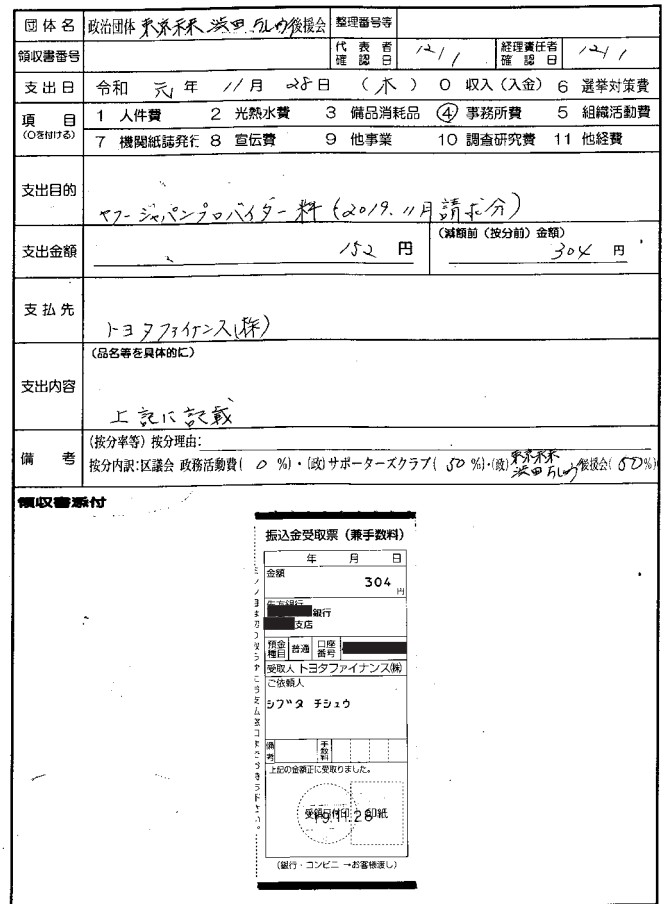 団体名 政治団体 東京未来 後援会 整理番号等
領収書番号 代表者確認日 12/1 経理責任者確認日 12/1
支出日 令和 元年 11月 28日 (木) 0 収入(入金) 6 選挙対策費
項目 (○を付ける) 1 人件費 2 光熱水費 3 備品消耗品 ④ 事務所費 5 組織活動費
7 機関紙誌発行 8 宣伝費 9 他事業 10 調査研究費 11 他経費
支出目的 ヤフージャパンプロバイダー料 (2019.11月請求分)
(減額前(按分前)金額)
支出金額 152 円 304 円
支払先 トヨタファイナンス(株)
(品名等を具体的に)
支出内容 上記に記載
備考 (按分率等) 按分理由:
按分内訳:区議会 政務活動費( 0 %)・(政)サポーターズクラブ( 50 %)・(政)東京未来 後援会( 50 %)
領収書添付
振込金受取票(兼手数料)
年 月 日
金額
304 円
先方銀行
銀行
支店
預金種目 普通 口座番号
受取人 トヨタファイナンス㈱
ご依頼人
シブタ チシュウ
備考 手数料
上記の金額正に受取りました。
受領日付印 印紙
19.11.28
(銀行・コンビニ→お客様渡し)